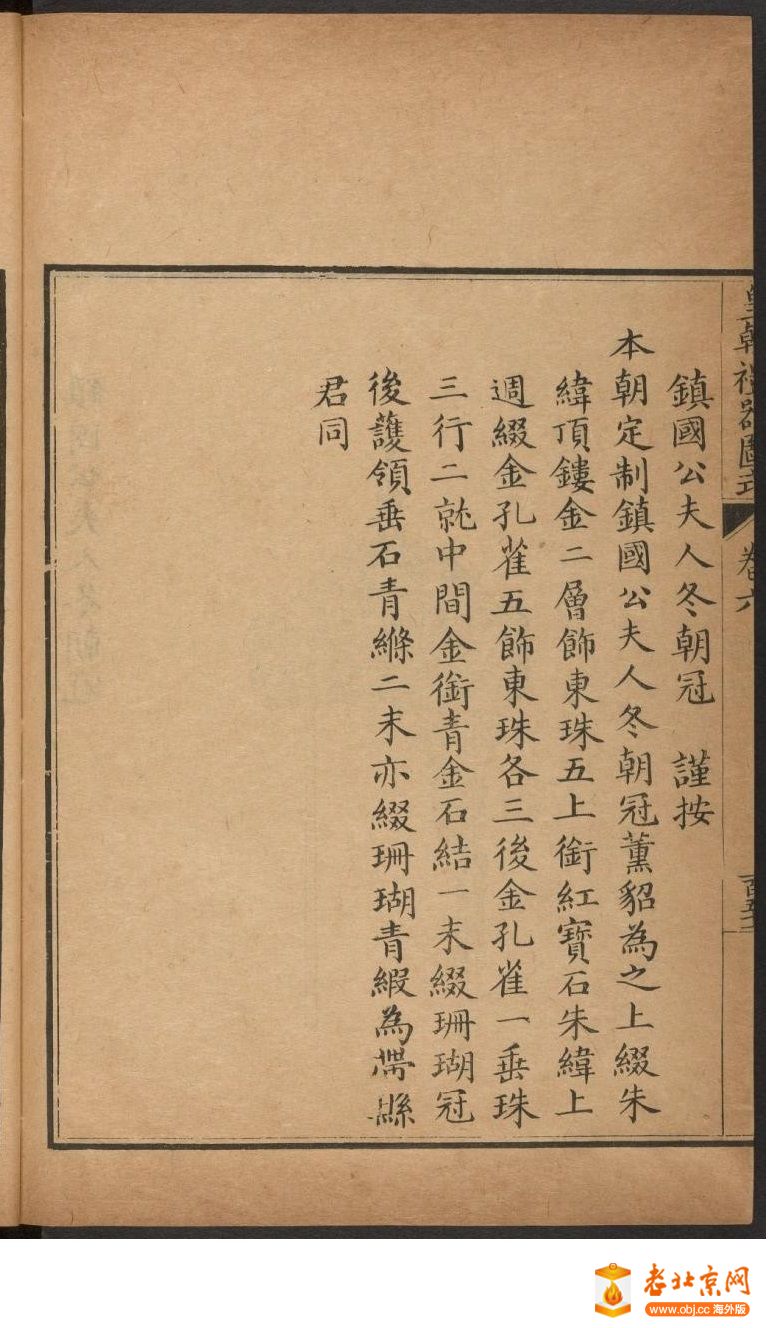 皇朝禮器圖式 卷六
鎮國公夫人冬朝冠 謹按
本朝定制鎮國公夫人冬朝冠薰貂為之上綴朱
緯頂鏤金二層飾東珠五上銜紅寶石朱緯上
週綴金孔雀五飾東珠各三後金孔雀一垂珠
三行二就中間金銜青金石結一末綴珊瑚冠
後䕶領垂石青絛二末亦綴珊瑚青緞為帶縣
君同
老北京网
www.obj.cc 海外版